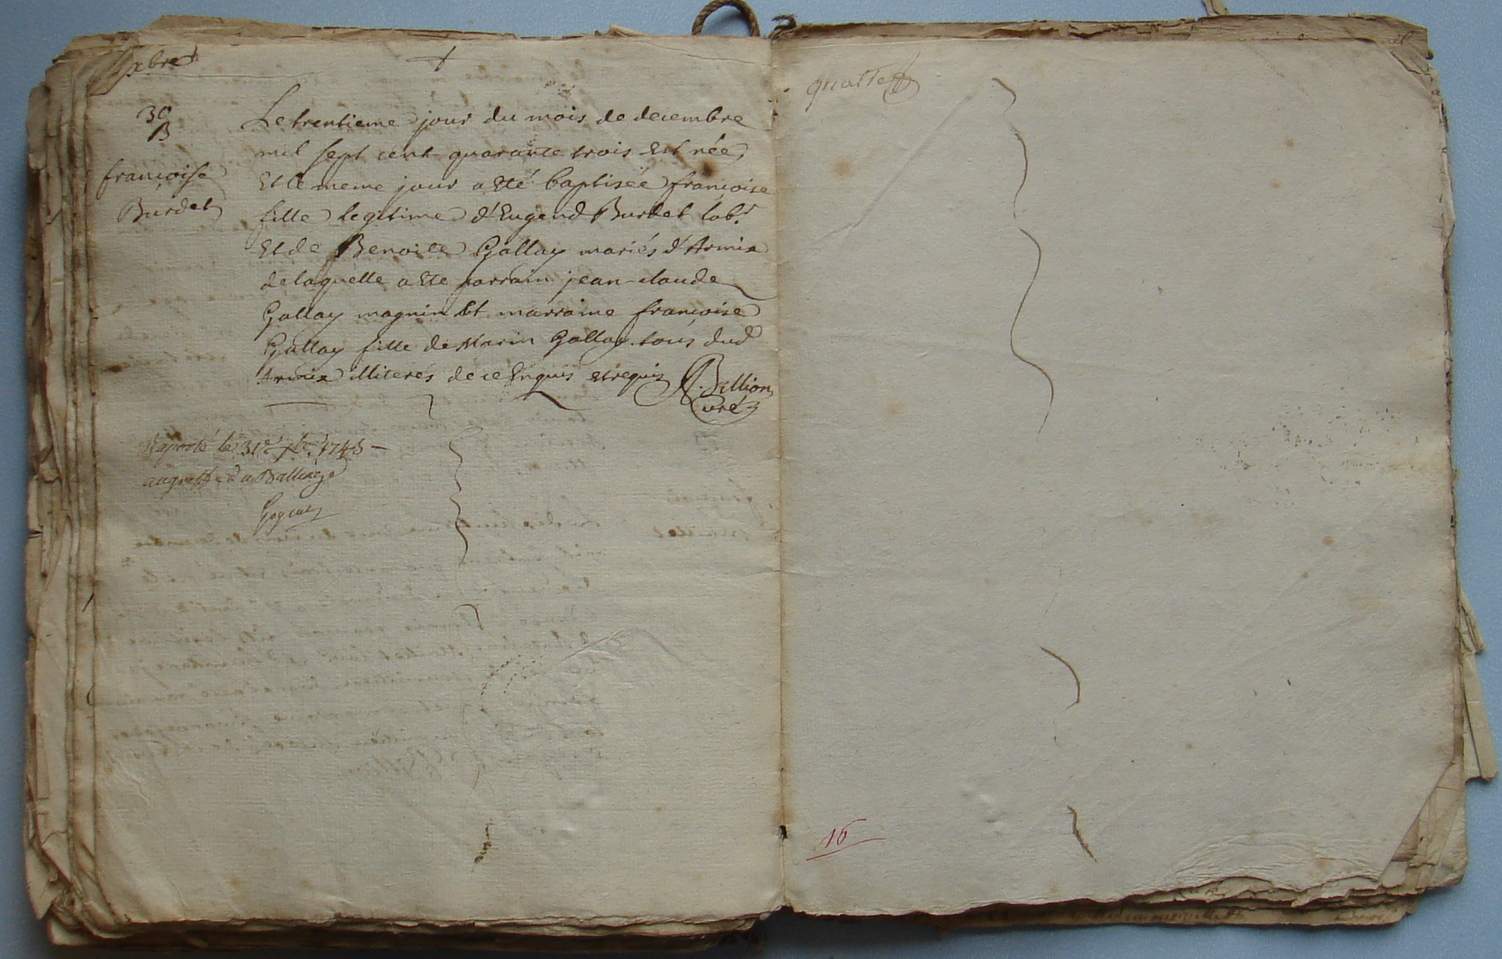 xbre
30
B
françoise
Burdet
Le trentieme jour du mois de decembre
mil sept cent quarante trois est née
Et le meme jour a eté baptisée françoise
fille legitime d'Eugend Burdet lab.r
Et de Benoite Gallay mariés d'Armix
de laquelle a ete parrain jean claude
Gallay magnin Et marraine françoise
Gallay fille de Marin Gallay tous dud
Armix illiterés de ce Enquis et requis Billion
Curé
le 31e xbre 1743
au greffe
quatre
16